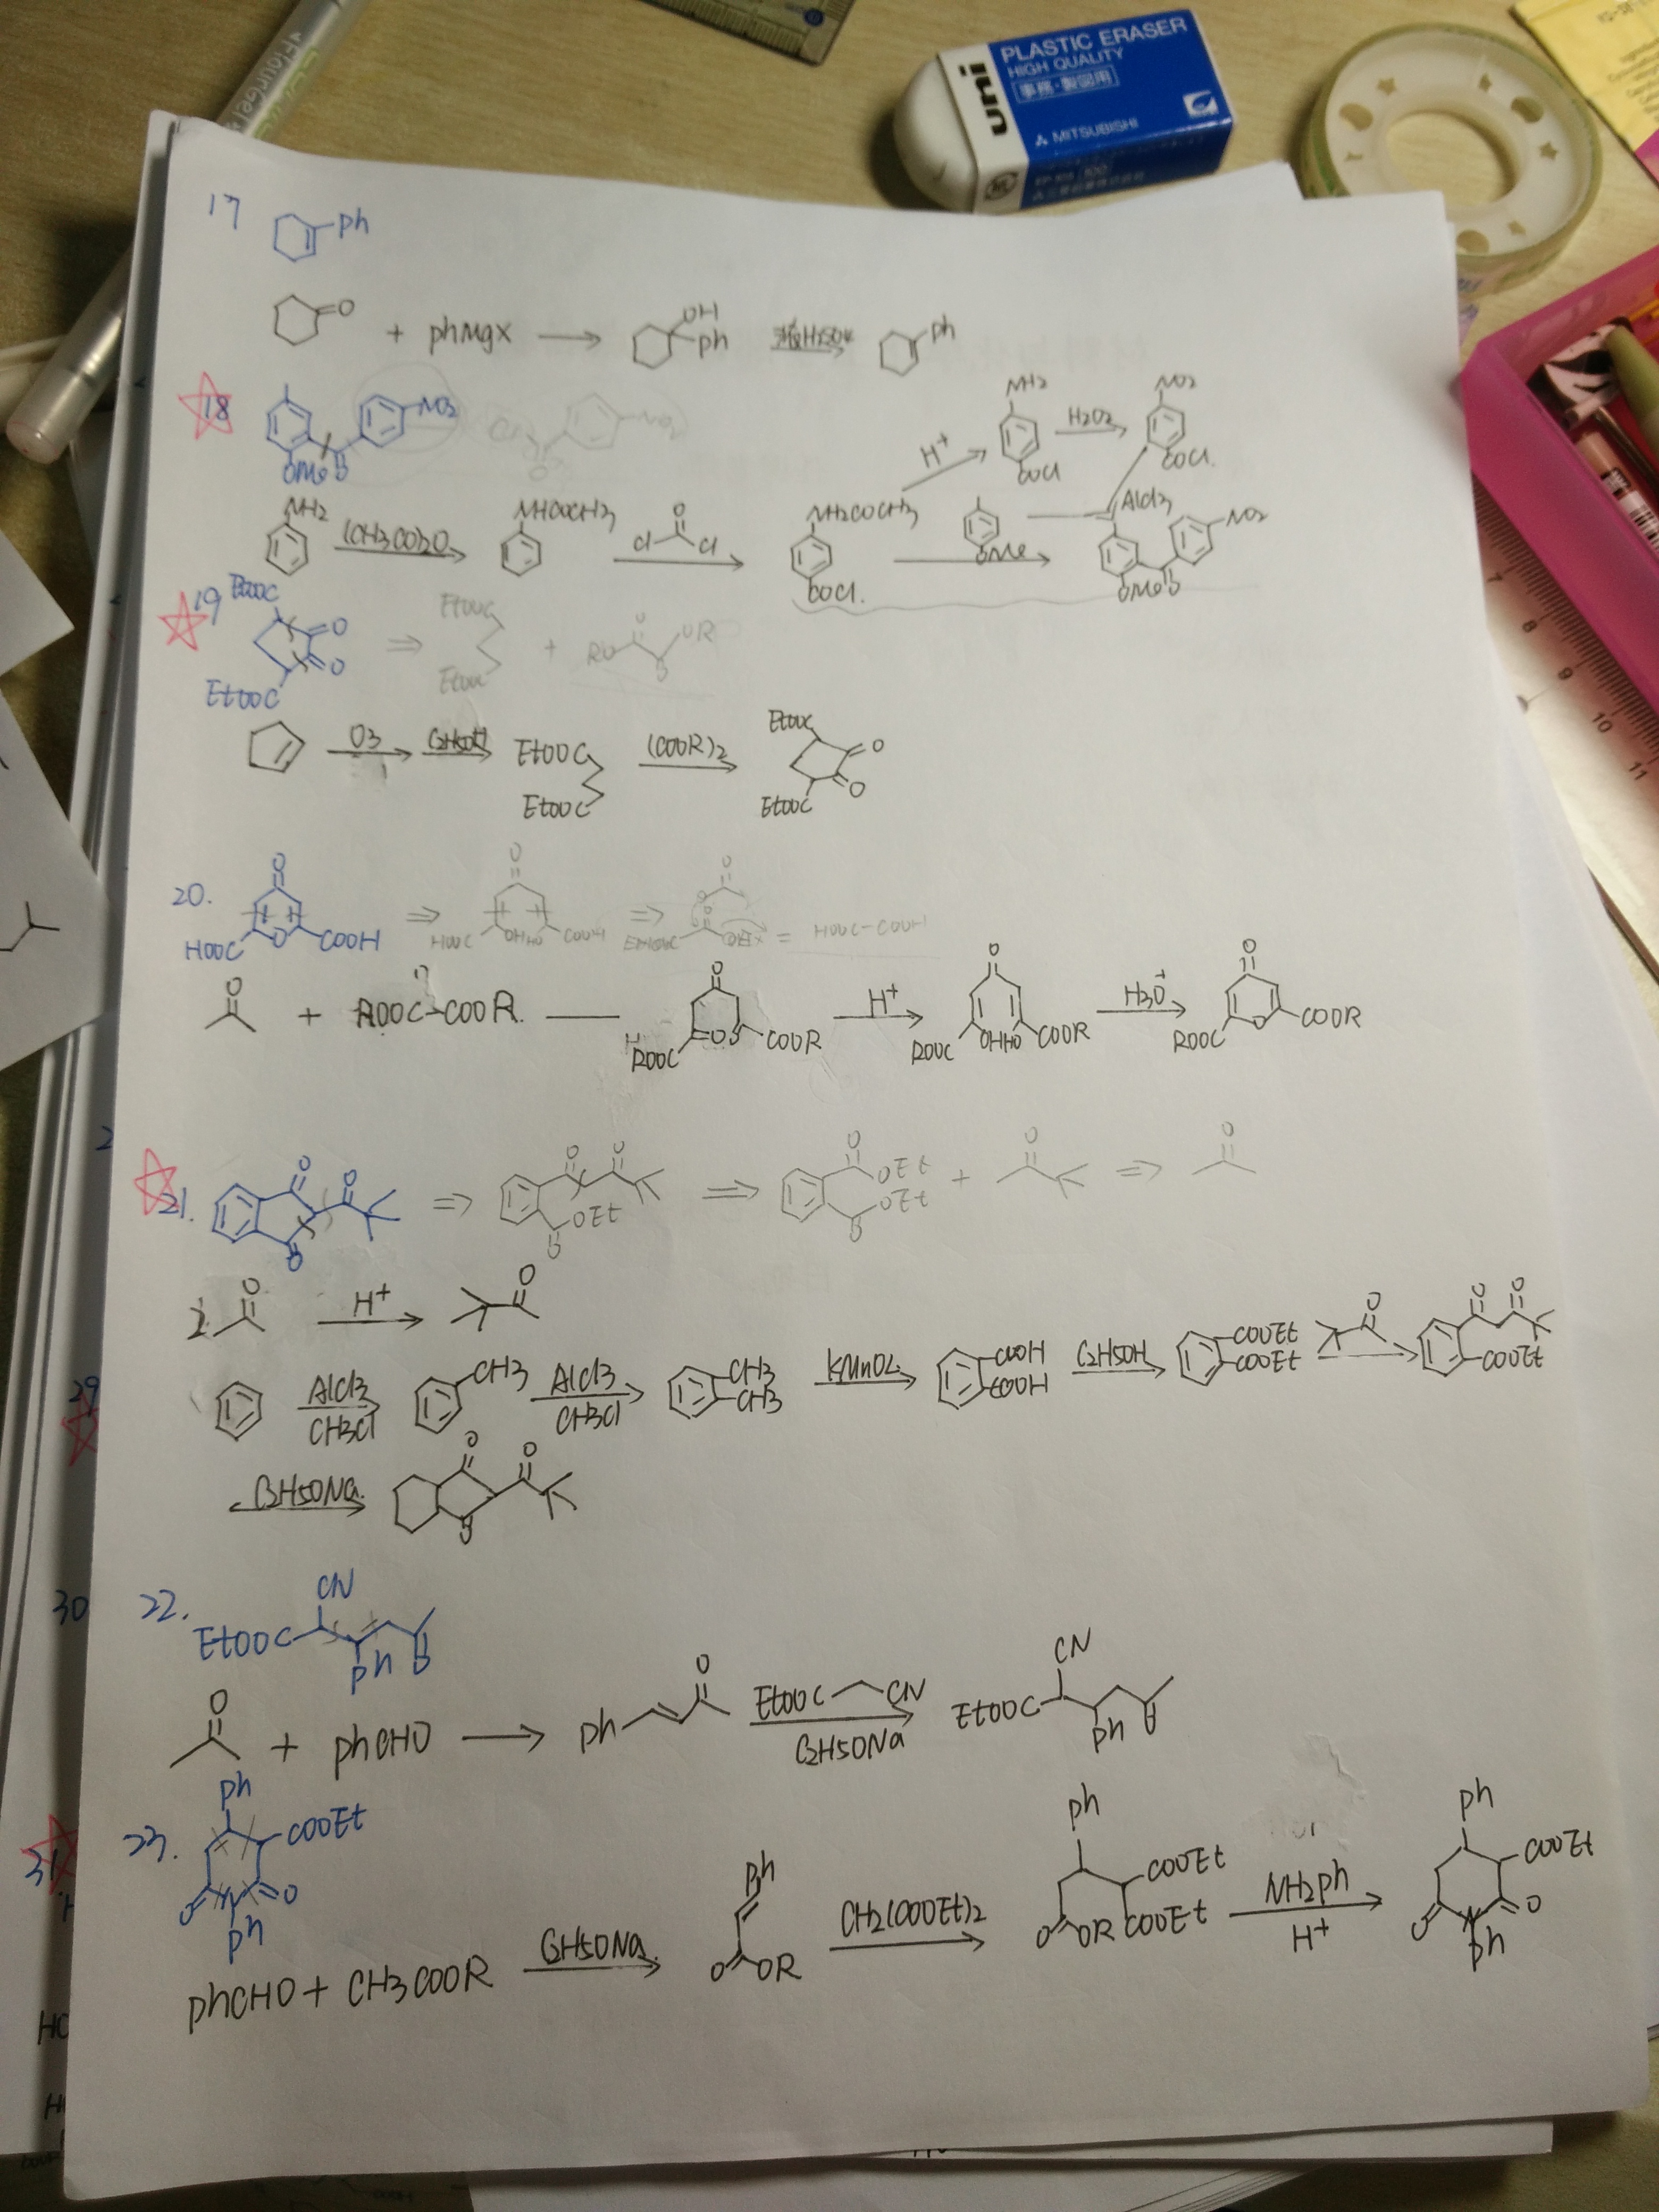 PLASTIC ERASER
HIGH QUALITY
事務・製図用
uni
MITSUBISHI
17
ph
O + phMgX OH ph ph
18
NO2
OMe O
NH2 (CH3CO)2O NHCOCH3 Cl O Cl NH2COCH3 COCl. OMe NO2 OMe O
H+ NH2 COCl H2O2 NO2 COCl.
AlCl3
19
EtOOC O O EtOOC ⇒ EtOOC EtOOC + RO O OR O
O3 C2H5OH EtOOC EtOOC (COOR)2 EtOOC O O EtOOC
20.
O HOOC O COOH ⇒ O HOOC OH HO COOH ⇒ = HOOC-COOH
O + ROOC-COOR. O ROOC O O COOR H+ O ROOC OH HO COOR H3O+ O ROOC O COOR
21.
O O O ⇒ O O OEt O ⇒ O OEt OEt O + O ⇒ O
O H+ O
AlCl3 CH3Cl CH3 AlCl3 CH3Cl CH3 CH3 KMnO4 COOH COOH C2H5OH COOEt COOEt O O O COOEt
C2H5ONa. O O O
22.
CN EtOOC ph O
O + phCHO ph O EtOOC CN C2H5ONa CN EtOOC ph O
23.
ph COOEt O N O ph
phCHO + CH3COOR C2H5ONa. ph O OR CH2(COOEt)2 ph COOEt O OR COOEt NH2ph H+ ph COOEt O N O ph
29
30
31
7
8
9
10
11